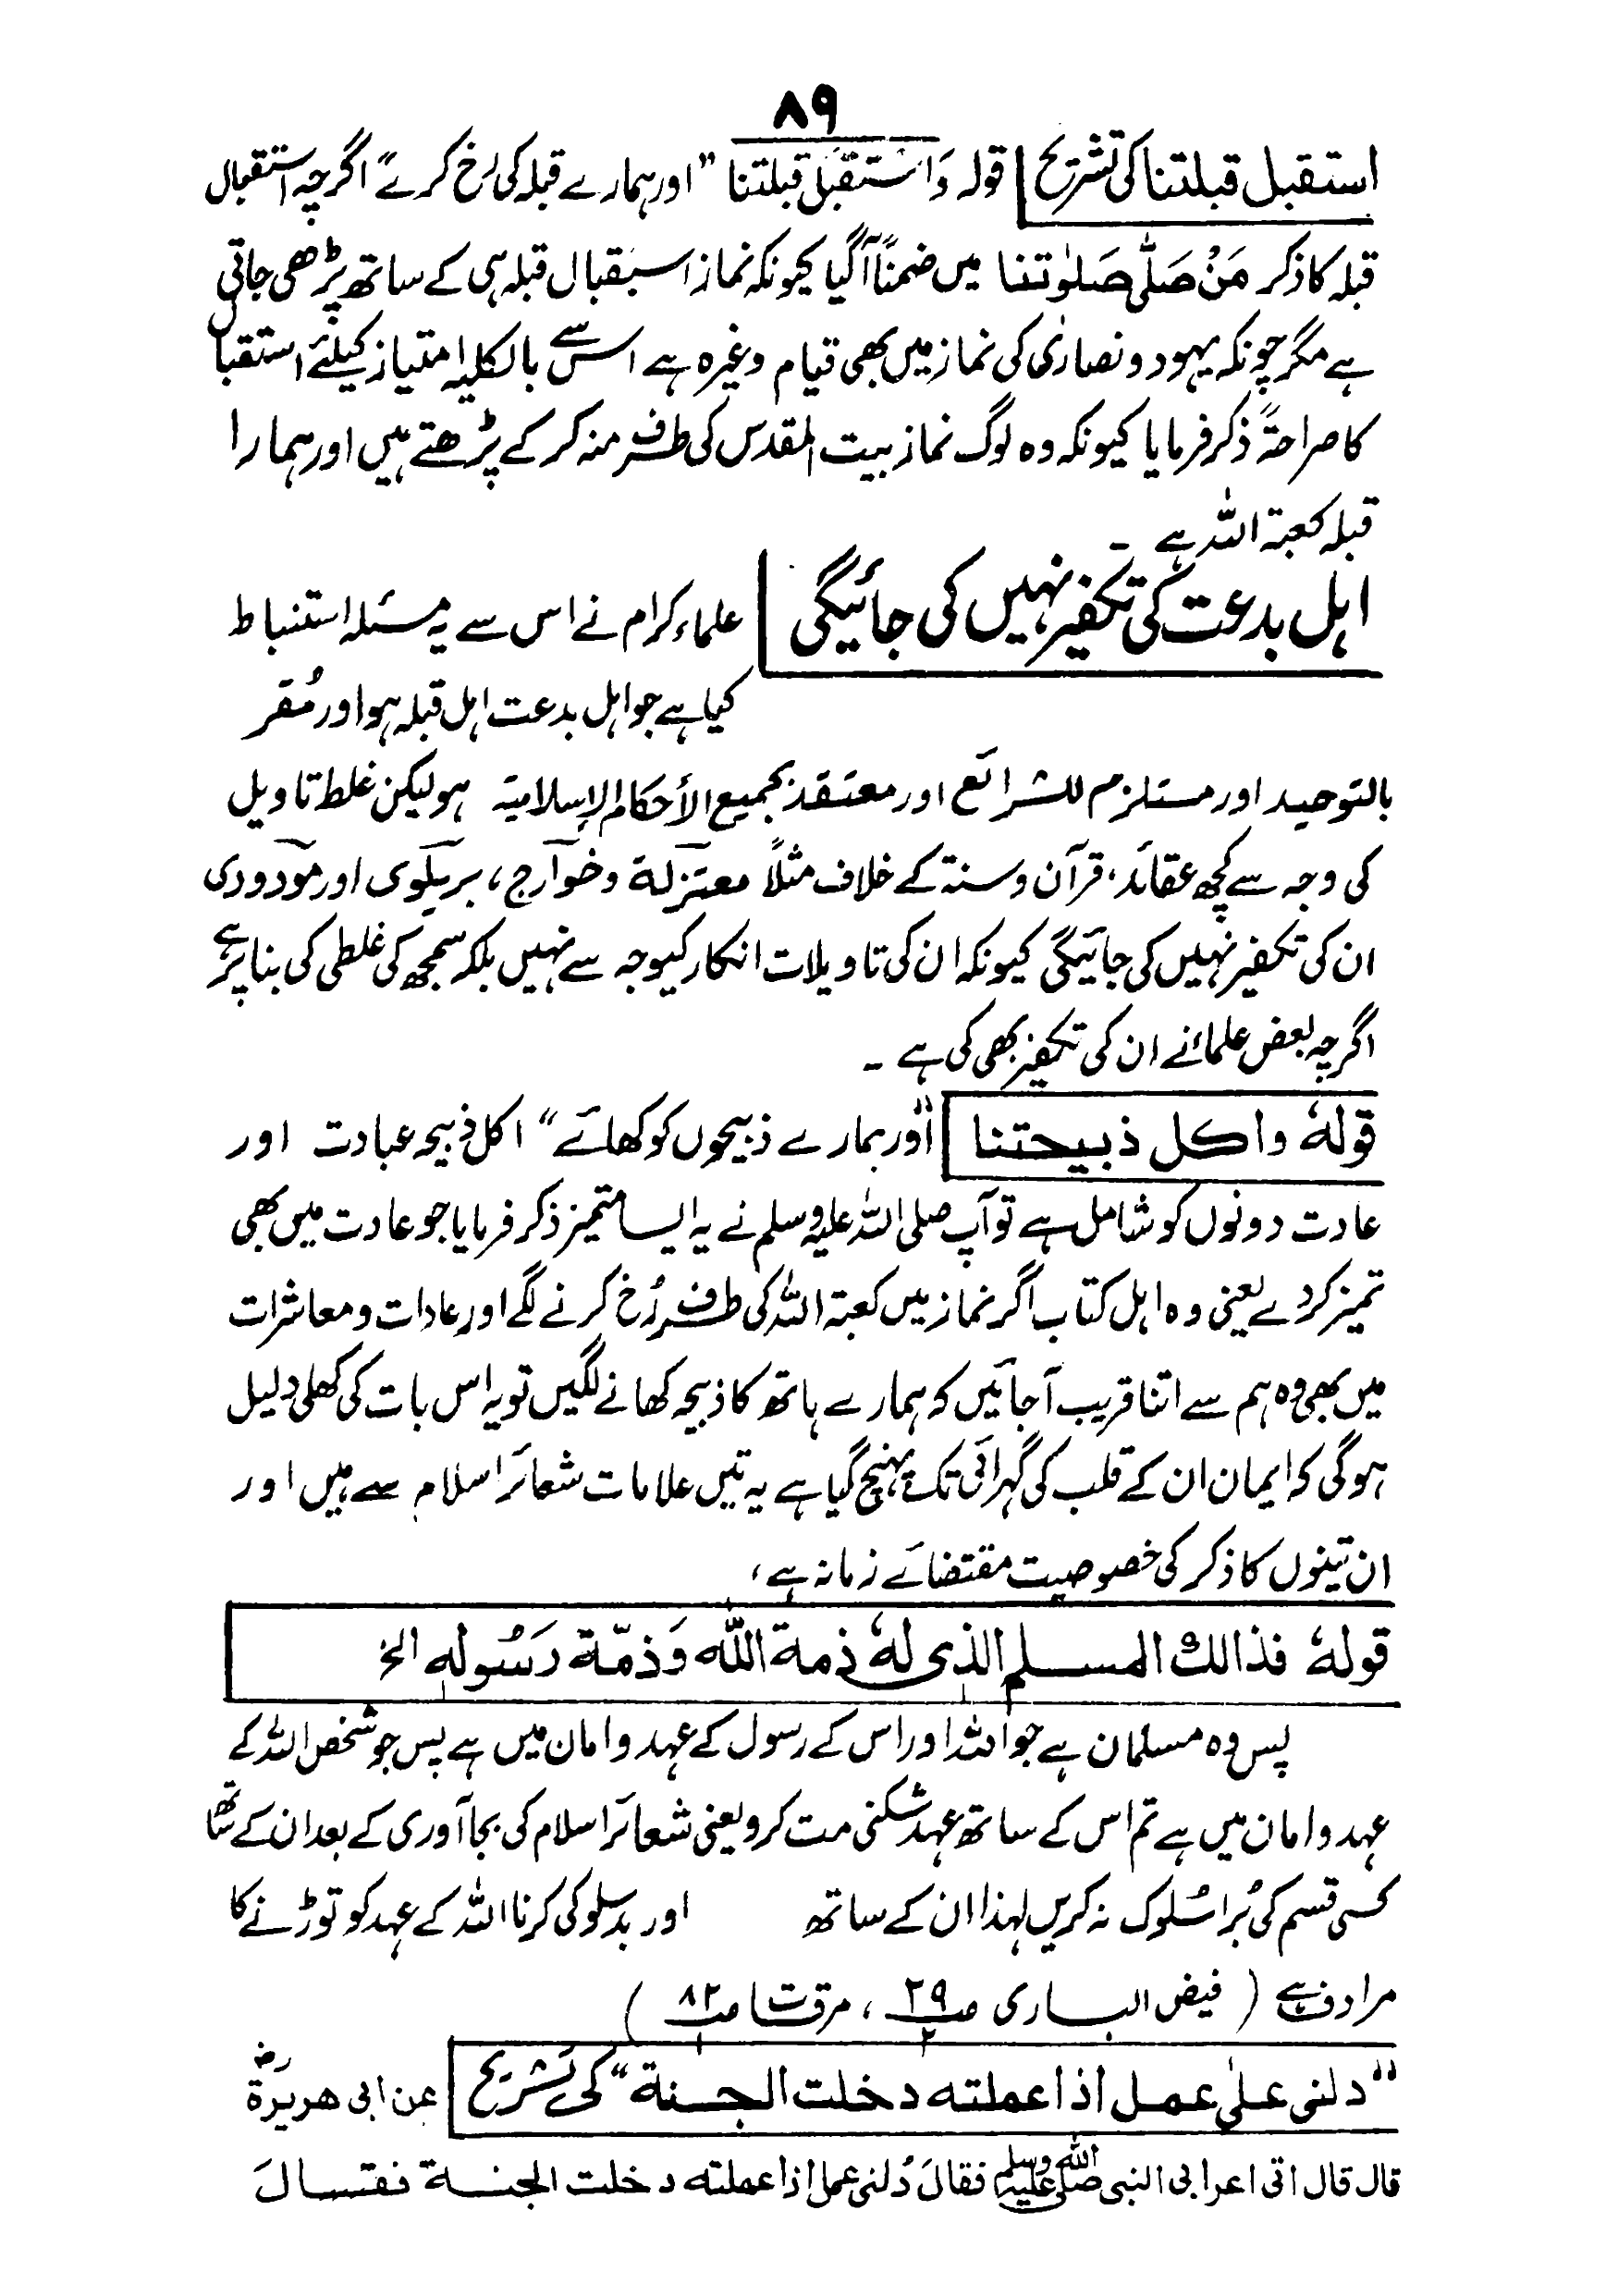 ۸۹
استقبل قبلتنا کی تشریح قولہ وَاسْتقبَل قبلتنا ”اور ہمارے قبلہ کی رخ کرے“ اگرچہ استقبال
قبلہ کا ذکر مَنْ صَلّٰی صَلوٰتنا میں ضمنًا آگیا کیونکہ نماز استقبال قبلہ ہی کے ساتھ پڑھی جاتی
ہے مگر چونکہ یہود و نصاریٰ کی نماز میں بھی قیام وغیرہ ہے اس سے بالکلیہ امتیاز کیلئے استقبال
کا صراحۃً ذکر فرمایا کیونکہ وہ لوگ نماز بیت المقدس کی طرف منہ کر کے پڑھتے ہیں اور ہمارا
قبلہ کعبۃ اللہ ہے ۔
اہل بدعت کی تکفیر نہیں کی جائیگی علماء کرام نے اس سے یہ مسئلہ استنباط
کیا ہے جو اہل بدعت اہل قبلہ ہو اور مُقر
بالتوحید اور مستلزم للشرائع اور معتقد بجمیع الأحکام الإسلامیۃ ہو لیکن غلط تاویل
کی وجہ سے کچھ عقائد، قرآن و سنۃ کے خلاف مثلاً معتزلۃ و خوارج، بریلوی اور مودودی
ان کی تکفیر نہیں کی جائیگی کیونکہ ان کی تاویلات انکار کیوجہ سے نہیں بلکہ سمجھ کی غلطی کی بنا پر ہے
اگرچہ بعض علماء نے ان کی تکفیر بھی کی ہے ۔
قولہٗ واکل ذبیحتنا ”اور ہمارے ذبیحوں کو کھائے“ اکل ذبیحہ عبادت اور
عادت دونوں کو شامل ہے تو آپ صلی اللہ علیہ وسلم نے یہ ایسا متمیز ذکر فرمایا جو عادت میں بھی
تمیز کر دے یعنی وہ اہل کتاب اگر نماز میں کعبۃ اللہ کی طرف رُخ کرنے لگے اور عادات و معاشرات
میں بھی وہ ہم سے اتنا قریب آجائیں کہ ہمارے ہاتھ کا ذبیحہ کھانے لگیں تو یہ اس بات کی کھلی دلیل
ہوگی کہ ایمان ان کے قلب کی گہرائی تک پہنچ گیا ہے یہ تیں علامات شعائر اسلام سے ہیں اور
ان تینوں کا ذکر کی خصوصیت مقتضائے زمانہ ہے،
قولہٗ فذالك المسلم الذی لہٗ ذمۃ اللّٰہ وَذمّۃ رَسُولِہٖ الخ
پس وہ مسلمان ہے جو اللہ اور اس کے رسول کے عہد و امان میں ہے پس جو شخص اللہ کے
عہد و امان میں ہے تم اس کے ساتھ عہد شکنی مت کرو یعنی شعائر اسلام کی بجا آوری کے بعد ان کے ساتھ
کسی قسم کی بُرا سُلوک نہ کریں لہذا ان کے ساتھ اور بدسلوکی کرنا اللہ کے عہد کو توڑنے کا
مرادف ہے ( فیض الباری ص۲۹/۲ ، مرقات ص۸۲/۱ )
”دلنی علیٰ عمل اذا عملتہ دخلت الجنۃ“ کی تشریح عن ابی ھریرۃ رضؓ
قال قال اتی اعرابی النبی صلی اللہ علیہ وسلم فقالَ دُلنی عمل اذا عملتہ دخلت الجنۃ فقال